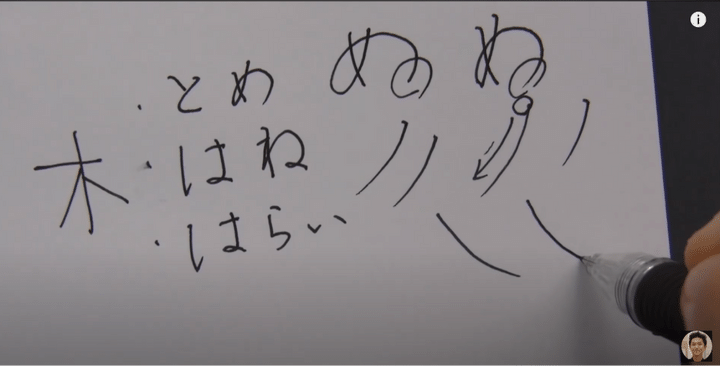 ぬ ぬ
・とめ
木 ・はね
・はらい